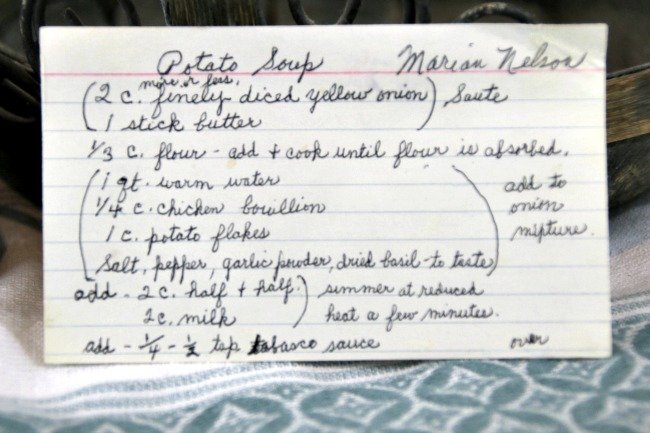 Potato Soup Marian Nelson
more or less.
(2 c. finely diced yellow onion) Saute
1 stick butter
1/3 c. flour - add + cook until flour is absorbed.
(1 qt. warm water add to
1/4 c. chicken bouillion onion
1 c. potato flakes mixture.
Salt, pepper, garlic powder, dried basil - to taste)
add - 2 c. half + half.) simmer at reduced
2 c. milk heat a few minutes.
add - 1/4 - 1/2 tsp tabasco sauce over